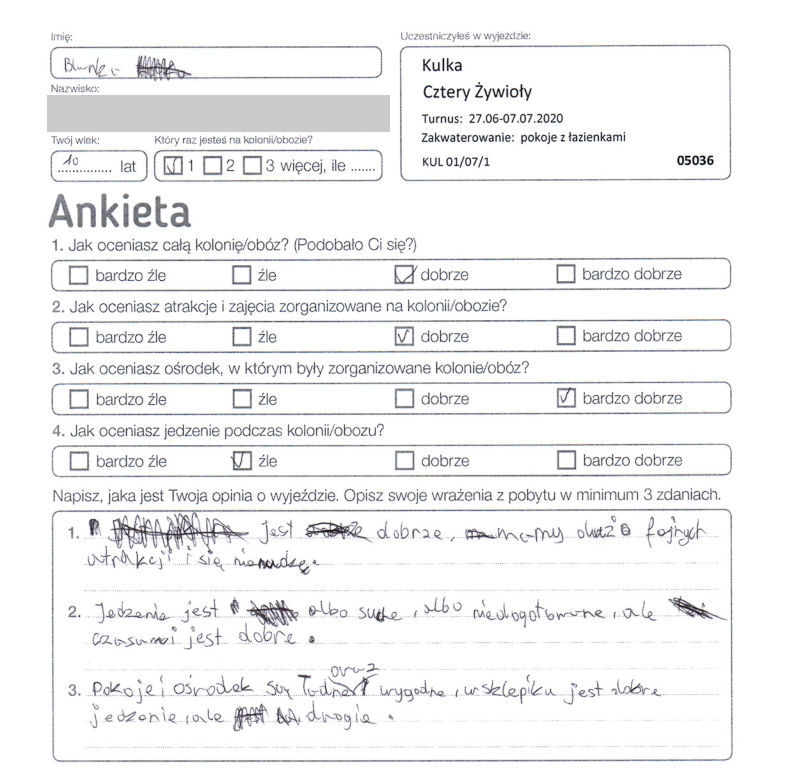 Imię:
Uczestniczyłeś w wyjeździe:
Kulka
Cztery Żywioły
Turnus: 27.06-07.07.2020
Zakwaterowanie: pokoje z łazienkami
KUL 01/07/1 05036
Nazwisko:
Twój wiek:
10 lat
Który raz jesteś na kolonii/obozie?
1 2 3 więcej, ile .......
Ankieta
1. Jak oceniasz całą kolonię/obóz? (Podobało Ci się?)
bardzo źle źle dobrze bardzo dobrze
2. Jak oceniasz atrakcje i zajęcia zorganizowane na kolonii/obozie?
bardzo źle źle dobrze bardzo dobrze
3. Jak oceniasz ośrodek, w którym były zorganizowane kolonie/obóz?
bardzo źle źle dobrze bardzo dobrze
4. Jak oceniasz jedzenie podczas kolonii/obozu?
bardzo źle źle dobrze bardzo dobrze
Napisz, jaka jest Twoja opinia o wyjeździe. Opisz swoje wrażenia z pobytu w minimum 3 zdaniach.
1. jest dobrze, mamy fajnych
atrakcji i się nienudzę.
2. Jedzenie jest albo suche, albo niedogotowane, ale
czasami jest dobre.
3. Pokoje i ośrodek są ładne oraz wygodne, w sklepiku jest dobre
jedzenie, ale drogie.